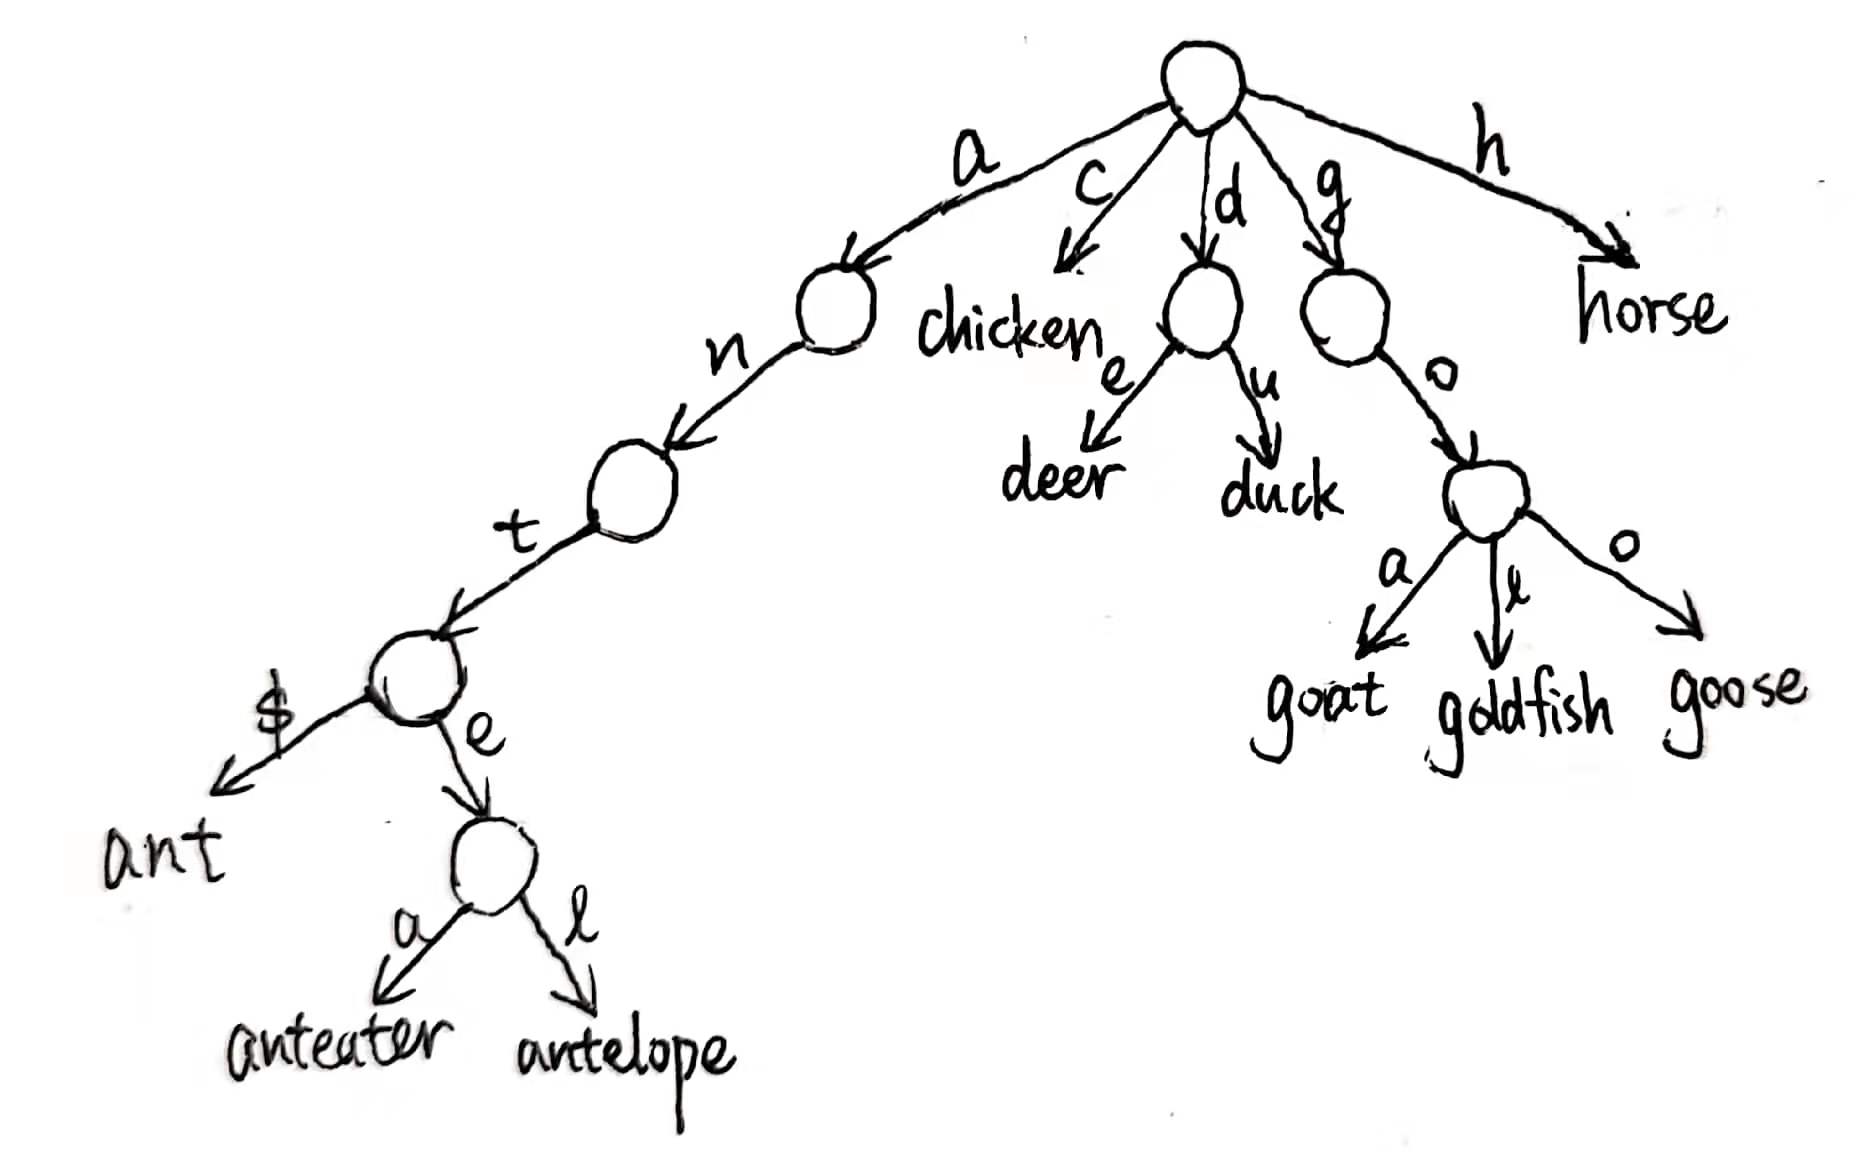 a
c
d
g
h
n
chicken
e
u
o
horse
t
deer
duck
a
l
o
$
e
goat
goldfish
goose
ant
a
l
anteater
antelope